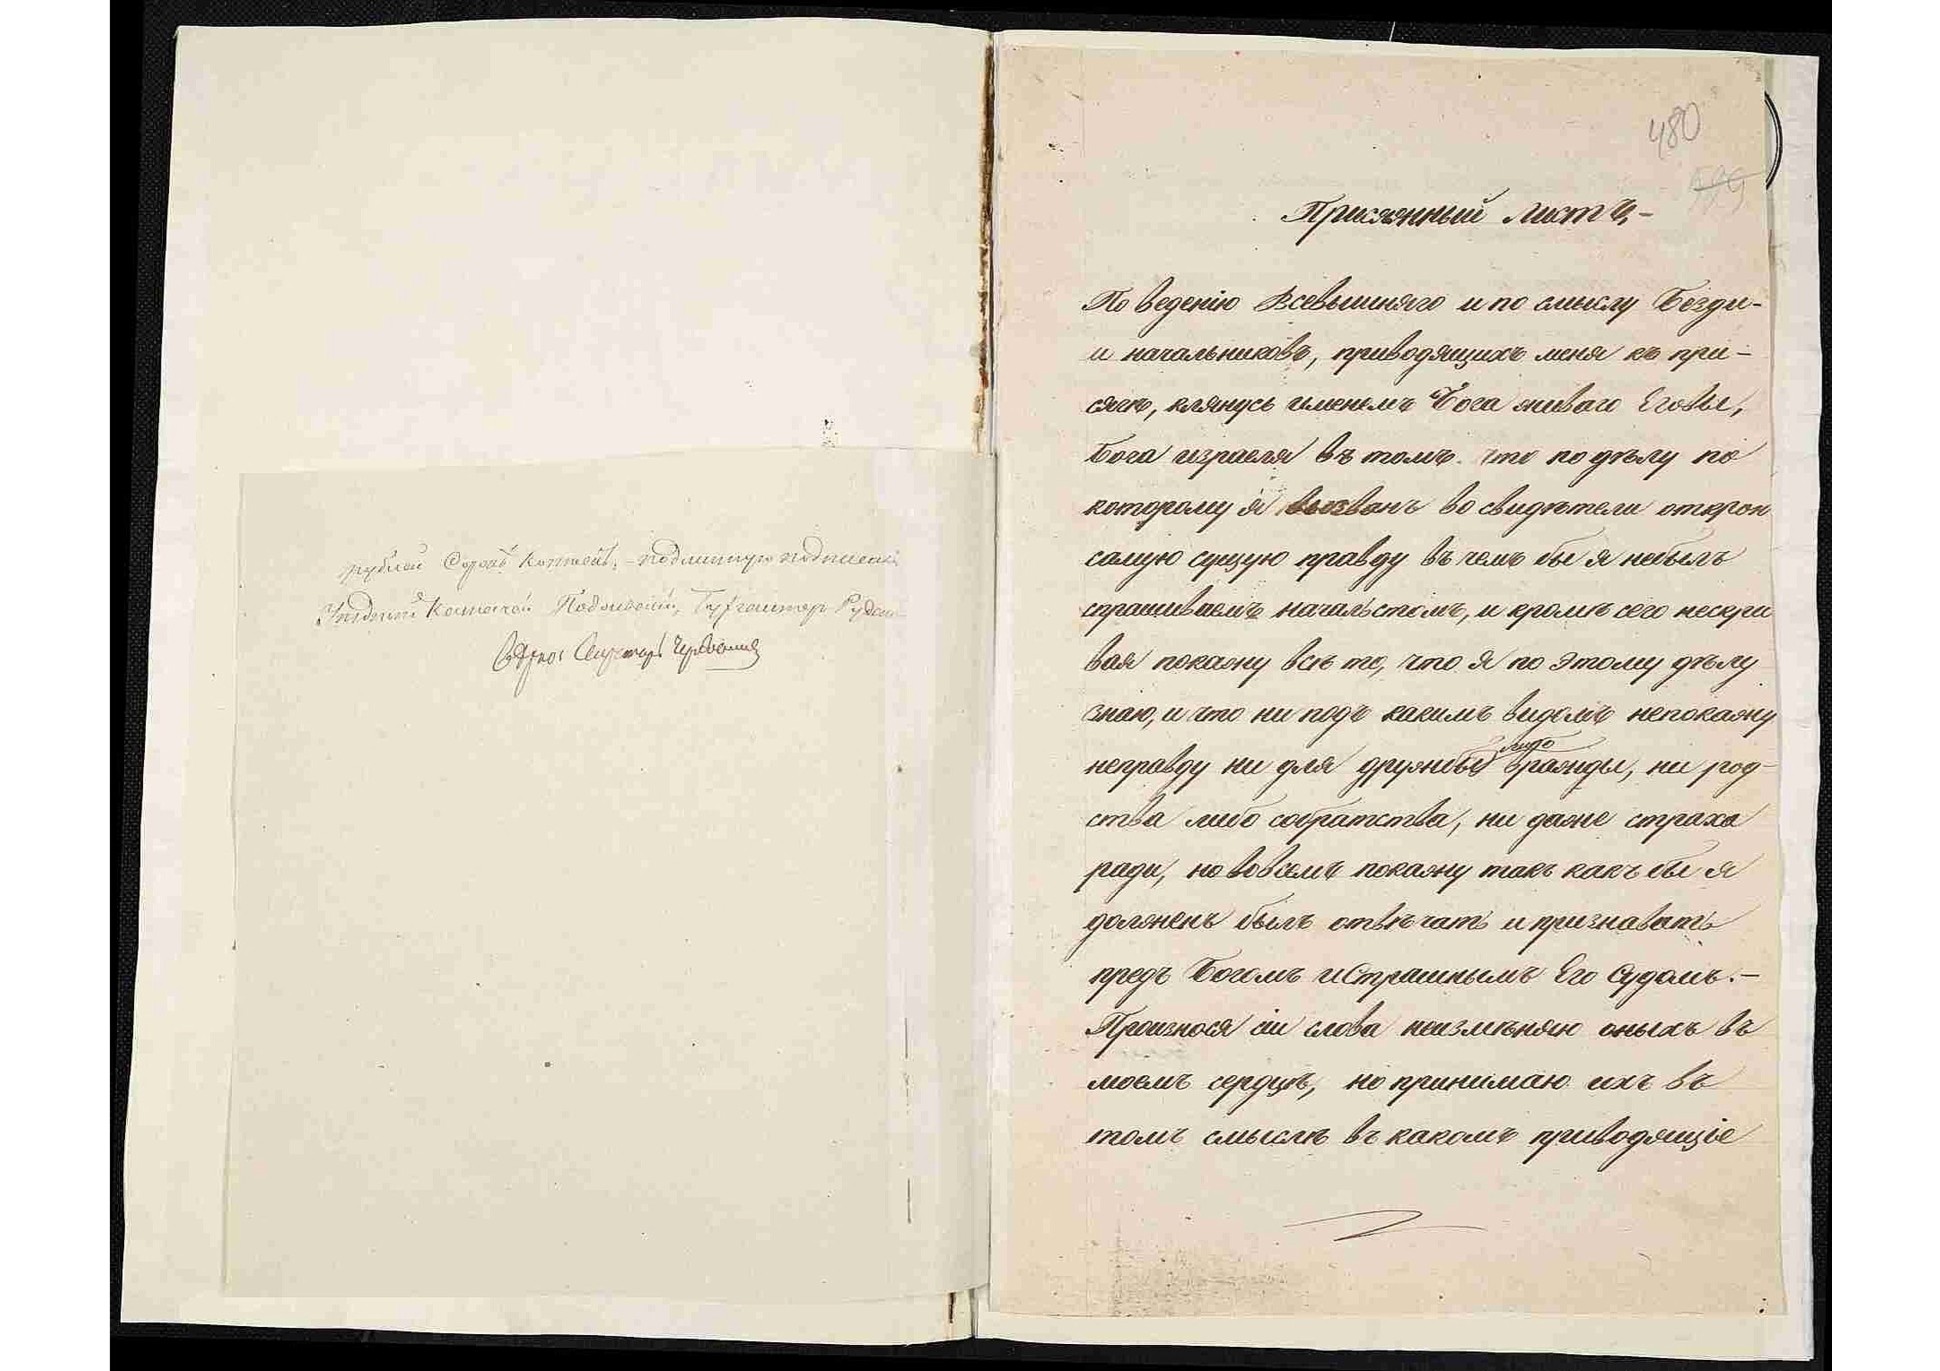 рублей Сорокъ копѣекъ, – подлинную подписали
Уѣздный Казначей Бухгалтеръ
Секретарь
480
Присяжный листъ, –
По веденію Всевышняго и по смыслу Безди-
и начальниковъ, приводящихъ меня къ при-
сягѣ, клянусь именемъ Бога живаго Еговы,
Бога израеля въ томъ что по дѣлу по
которому я вызванъ во свидѣтели открою
самую сущую правду въ чемъ бы я небылъ
спрашиваемъ начальстомъ, и кромѣ сего нескри
вая покажу всѣ то, что я по этому дѣлу
знаю, и что ни подъ какимъ видомъ непокажу
неправду ни для дружбы либо вражды, ни род-
ства либо собратства, ни даже страха
ради, но вовсемъ покажу такъ какъ бы я
долженъ былъ отвѣчать и признавать
предъ Богомъ и Страшнымъ Его Судомъ. –
Произнося сіи слова неизмѣняю оныхъ въ
моемъ сердцѣ, но принимаю ихъ въ
томъ смыслѣ въ какомъ приводящіе